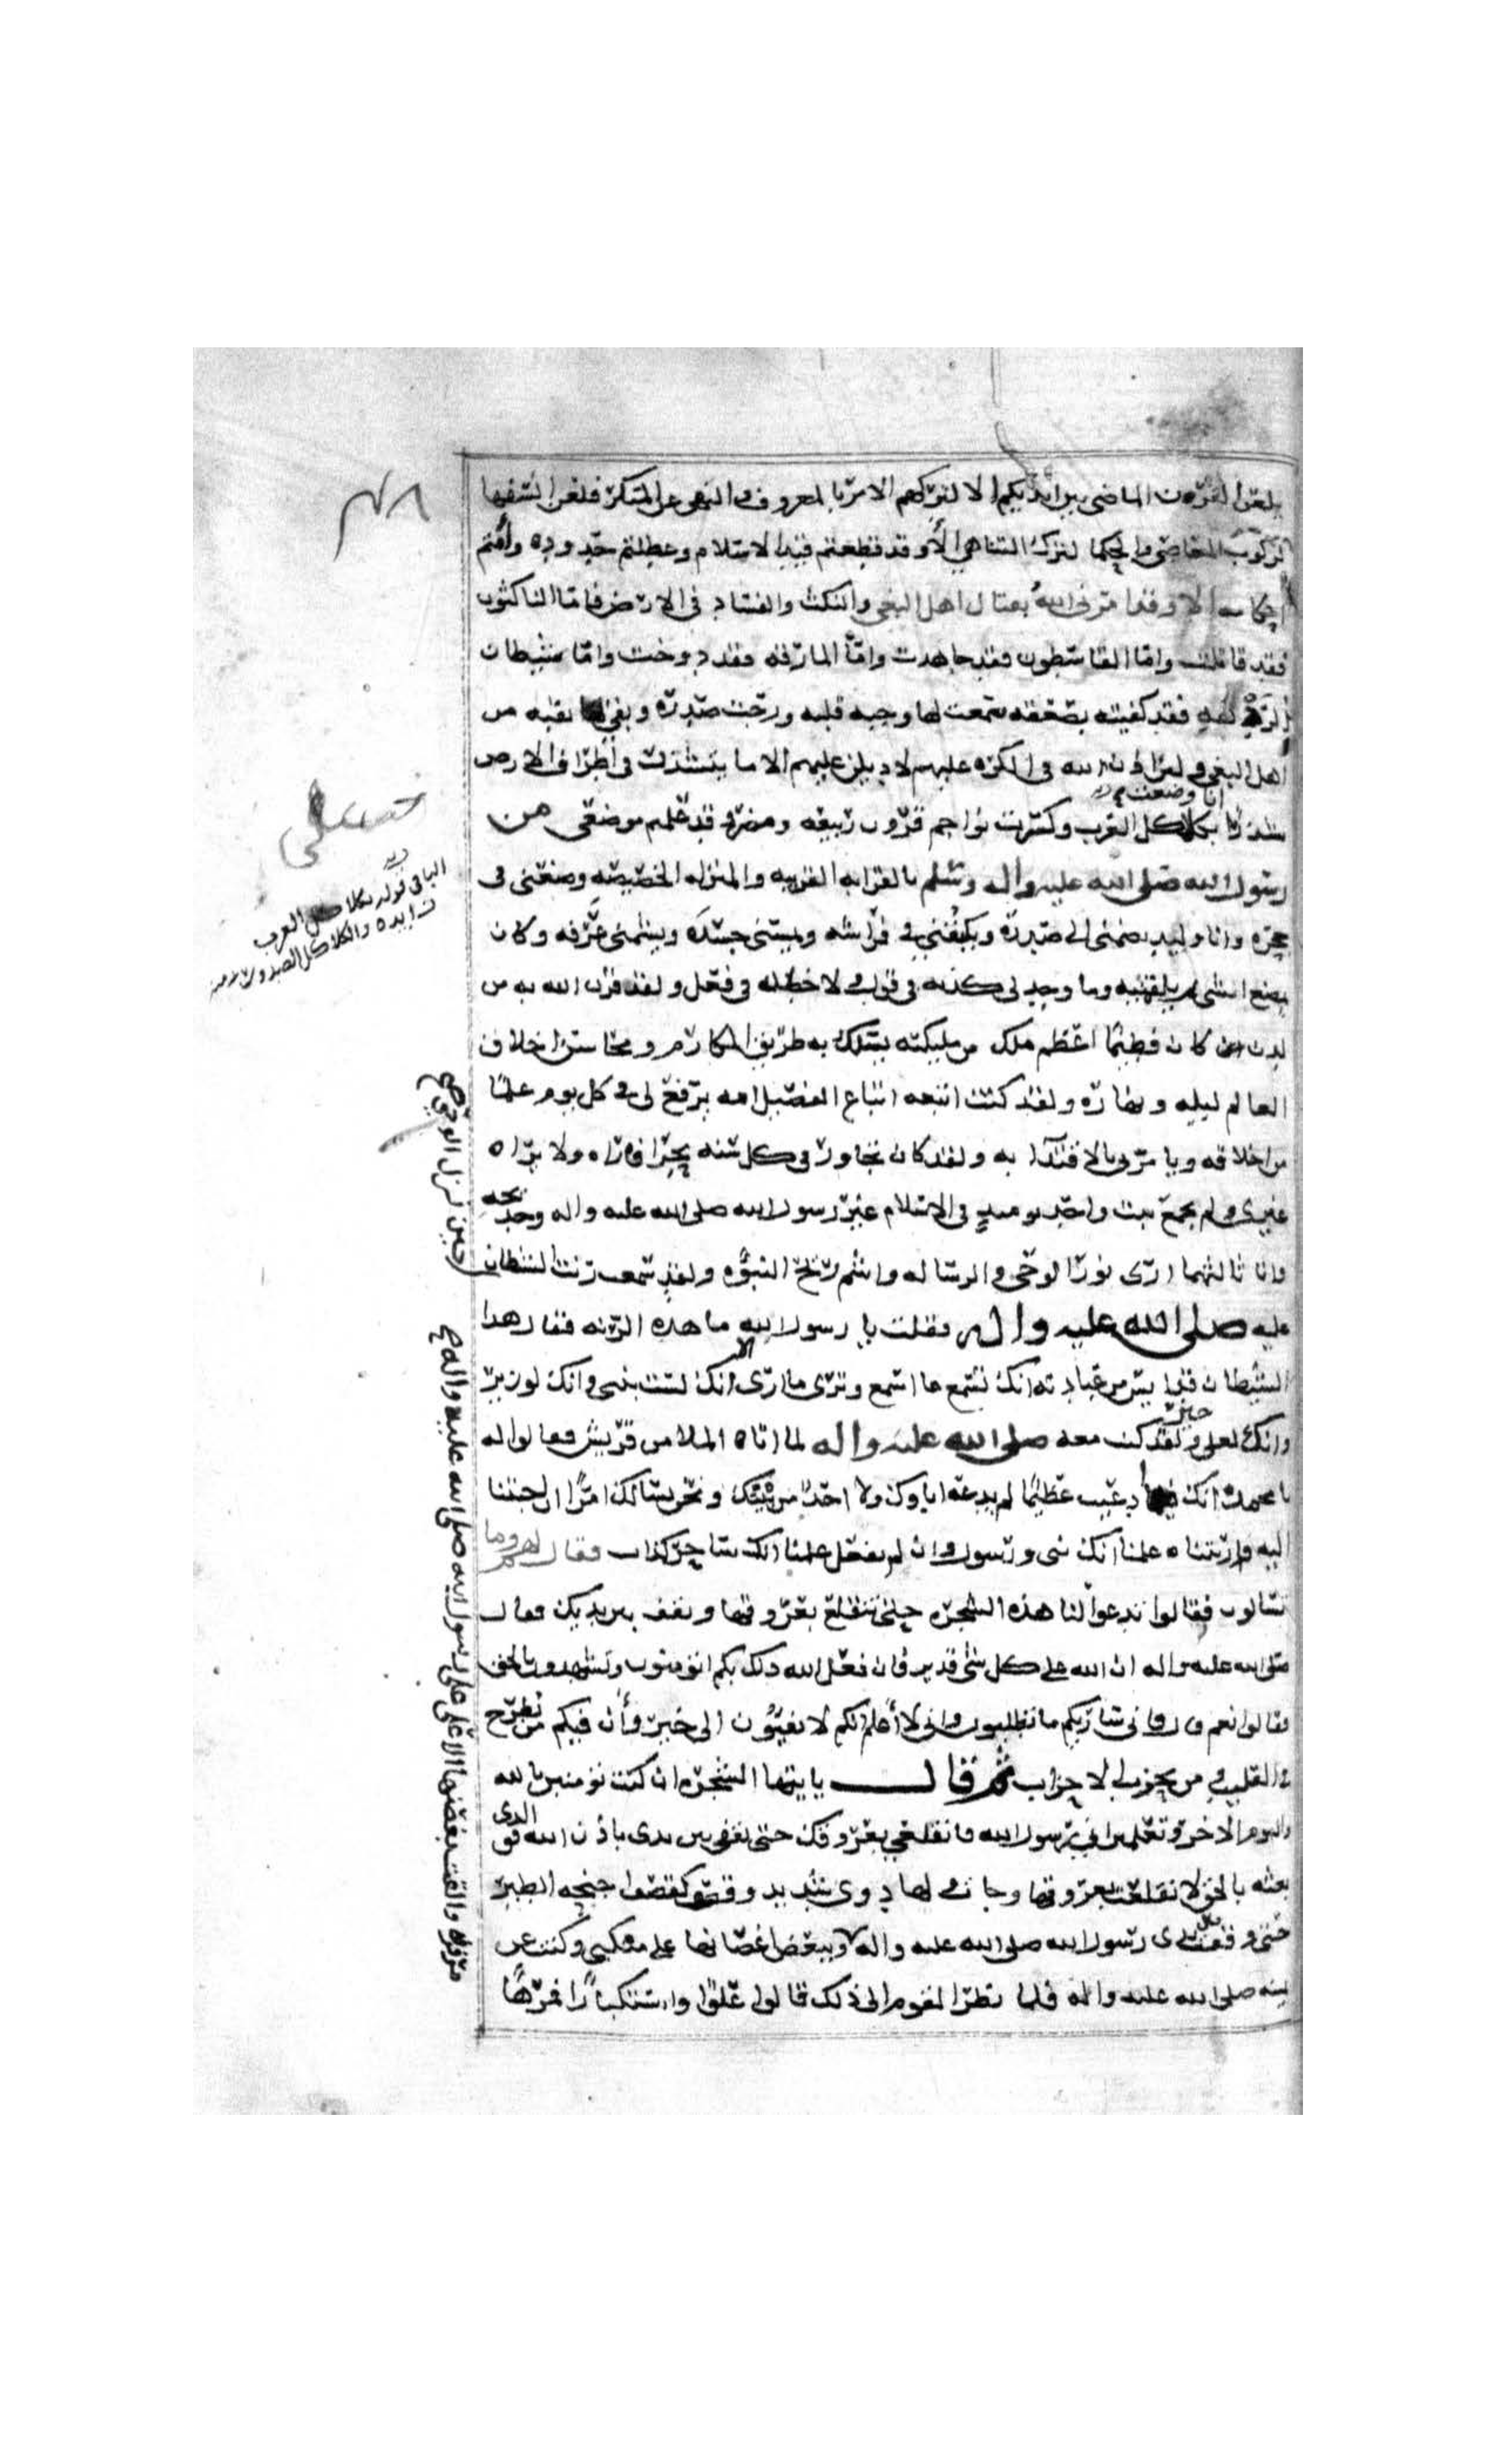 يلعن القرن الماضي بين ايديكم الا لتركهم الامر بالمعروف والنهي عن المنكر فلعن السفها
لركوب المعاصي والحكما لترك التناهي الا وقد قطعتم قيد الاسلام وعطلتم حدوده وامتم
احكامه الا وقد امرني الله بقتال اهل البغي والنكث والفساد في الارض فاما الناكثون
فقد قاتلت واما القاسطون فقد جاهدت واما المارقه فقد دوخت واما شيطان
الردهه فقد كفيته بصعقه سمعت لها وجبه قلبه ورجت صدره وبقي بقيه من
اهل البغي ولئن اذن الله في الكره عليهم لاديلن عليهم الا ما يتشذر في اطراف الارض
انا وضعت
تشذرا بكلاكل العرب وكسرت نواجم قرون ربيعه ومضر وقد علمتم موضعي من
رسول الله صلى الله عليه واله وسلم بالقرابه القريبه والمنزله الخصيصه وضعني في
حجره وانا وليد يضمني الى صدره ويكنفني في فراشه ويمسني جسده ويشمني عرفه وكان
يمضغ الشي ثم يلقمنيه وما وجد لي كذبه في قول ولا خطله في فعل ولقد قرن الله به من
لدن كان فطيما اعظم ملك من مليكته يسلك به طريق المكارم ومحاسن اخلاق
العالم ليله ونهاره ولقد كنت اتبعه اتباع الفصيل امه يرفع لي في كل يوم علما
من اخلاقه ويامرني بالاقتدا به ولقد كان يجاور في كل سنه بحرا فاراه ولا يراه
غيري ولم يجمع بيت واحد يوميذ في الاسلام غير رسول الله صلى الله عليه واله وخديجه
وانا ثالثهما ارى نور الوحي والرساله واشم ريح النبوه ولقد سمعت رنت الشيطان
عليه صلى الله عليه واله فقلت يا رسول الله ما هذه الرنه فقال هذا
الشيطان قد ايس من عبادته انك تسمع ما اسمع وترى ما ارى الا انك لست بنبي وانك لوزير
وانك لعلى خير ولقد كنت معه صلى الله عليه واله لما اتاه الملا من قريش فقالوا له
يا محمد انك قد ادعيت عظيما لم يدعه اباوك ولا احد من بيتك ونحن نسالك امرا ان اجبتنا
اليه واريتناه علمنا انك نبي ورسول وان لم تفعل علمنا انك ساحر كذاب فقال لهم وما
تسالون فقالوا تدعوا لنا هذه الشجره حتى تنقلع بعروقها وتقف بين يديك فقال
صلى الله عليه واله ان الله على كل شي قدير فان فعل الله ذلك بكم اتومنون وتشهدون بالحق
فقالوا نعم قال فاني ساريكم ما تطلبون واني لاعلم انكم لا تفيون الى خير وان فيكم من يطرح
في القليب ومن يحزب الاحزاب ثم قال يا ايتها الشجره ان كنت تومنين بالله
واليوم الاخر وتعلمين اني رسول الله فانقلعي بعروقك حتى تقفي بين يدي باذن الله فو الذي
بعثه بالحق لانقلعت بعروقها وجات ولها دوي شديد وقصف كقصف اجنحه الطير
حتى وقفت بين يدي رسول الله صلى الله عليه واله مرفرفه والقت بغصنها الاعلى على رسول الله صلى الله عليه واله وببعض اغصانها على منكبي وكنت عن
يمينه صلى الله عليه واله فلما نظر القوم الى ذلك قالوا علوا واستكبارا فمرها
حين نزل الوحي صح
الباقي قوله بكلاكل العرب
زايده والكلاكل الصدور